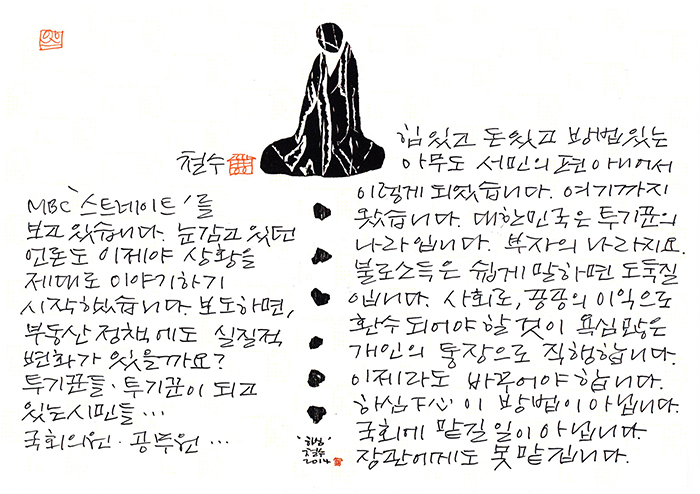 철수
MBC '스트레이트'를
보고 있습니다. 눈감고 있던
언론도 이제야 상황을
제대로 이야기하기
시작했습니다. 보도하면,
부동산 정책에도 실질적
변화가 있을까요?
투기꾼들·투기꾼이 되고
있는 시민들…
국회의원·공무원…
힘 있고 돈 있고 방법 있는
아무도 서민의 편 아니어서
이렇게 되었습니다. 여기까지
왔습니다. 대한민국은 투기꾼의
나라입니다. 부자의 나라지요.
불로소득은 쉽게 말하면 도둑질
입니다. 사회로, 공공의 이익으로
환수되어야 할 것이 욕심많은
개인의 통장으로 직행합니다.
이제라도 바꾸어야 합니다.
하심下心이 방법이 아닙니다.
국회에 맡길 일이 아닙니다.
장관에게도 못 맡깁니다.
'하심'
철수
2014